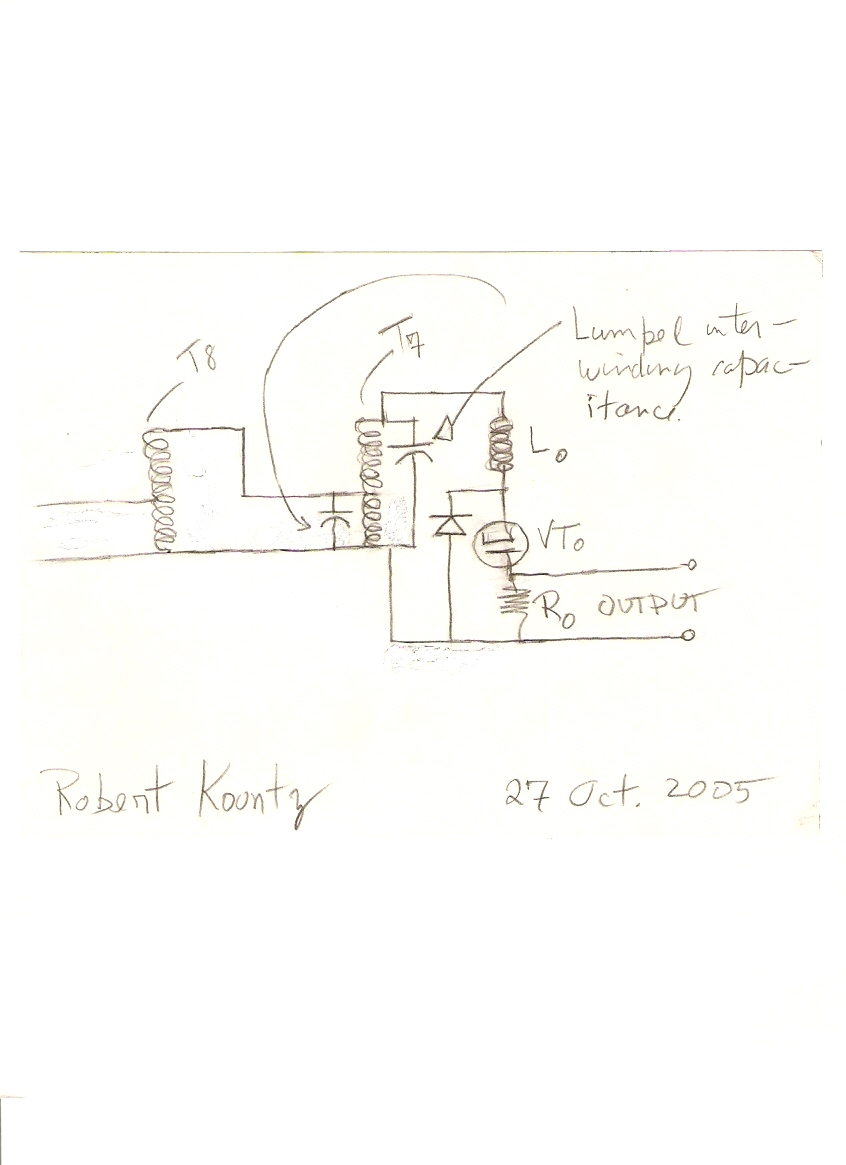 T8
T7
Lumped inter-
winding capac-
itance.
Lo
VTo
Ro OUTPUT
Robert Koontz
27 Oct. 2005